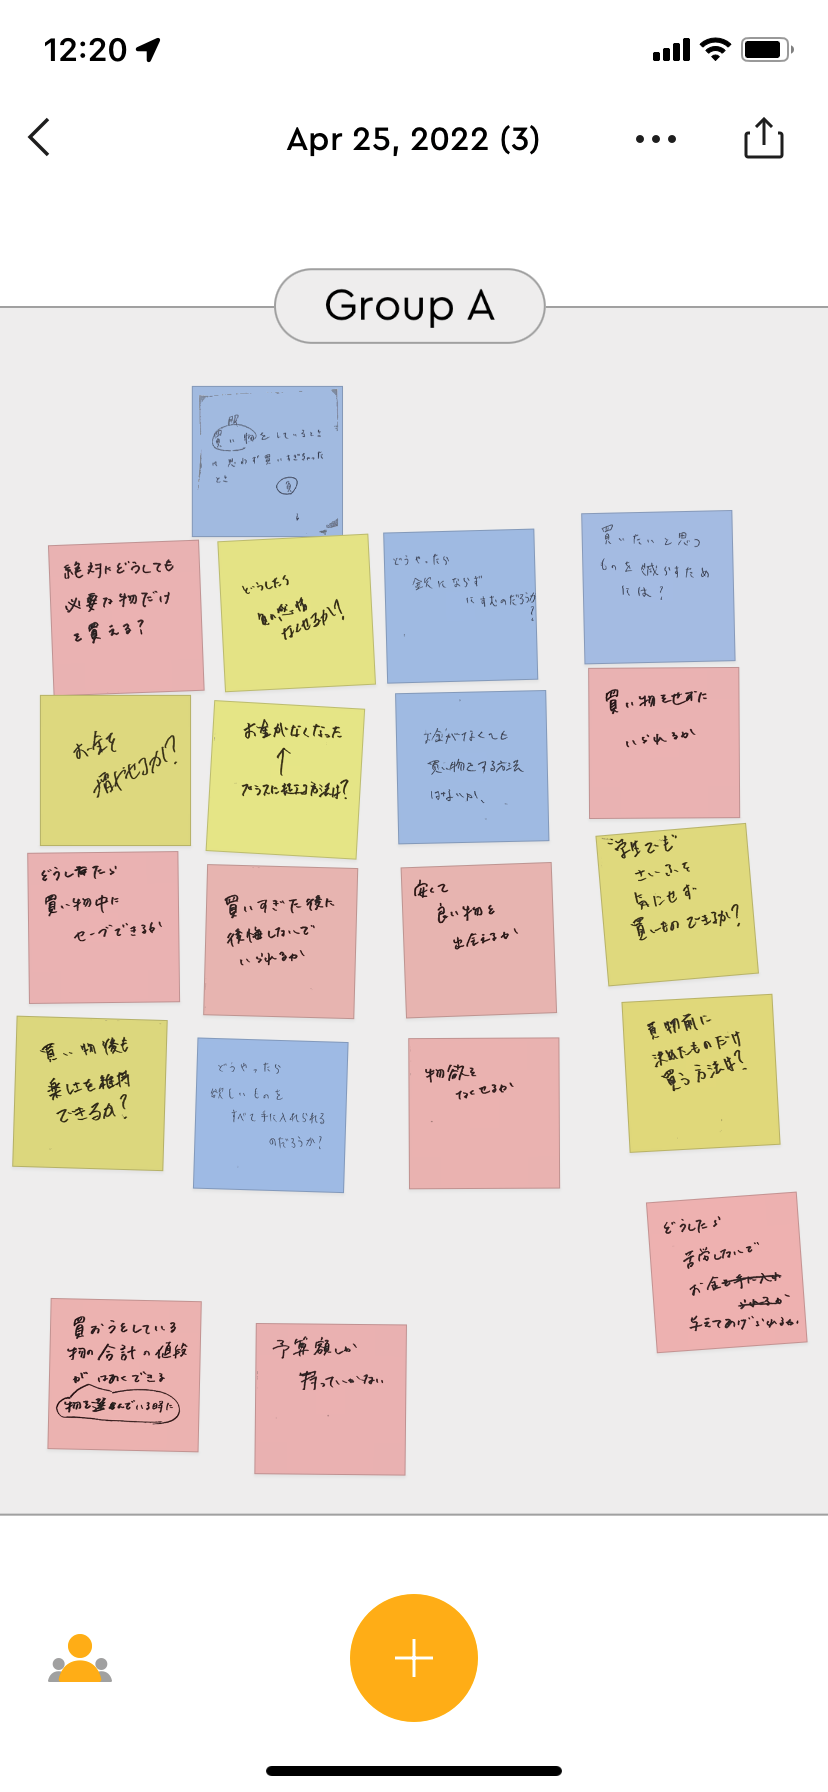 12:20
Apr 25, 2022 (3)
Group A
服
買い物をしているとき
思わず買いすぎちゃった
とき
負
絶対にどうしても
必要な物だけ
を買える?
どうしたら
負の感情
なくせるか?
どうやったら
欲にならず
にすむのだろうか
?
買いたいと思う
ものを減らすため
には?
お金を
増やせるか?
お金がなくなった
↑
プラスに捉える方法は?
お金がなくても
買い物をする方法
はないか、
買い物をせずに
いられるか
どうしたら
買い物中に
セーブできるか
買いすぎた後に
後悔しないで
いられるか
安くて
良い物を
出会えるか
学生でも
さいふを
気にせず
買いものできるか?
買い物後も
楽しさを維持
できるか?
どうやったら
欲しいものを
すべて手に入れられる
のだろうか?
物欲を
なくせるか
買物前に
決めたものだけ
買う方法は?
どうしたら
苦労しないで
お金も手に入れ
られるか
与えてあげられるか
買おうをしている
物の合計の値段
がはあくできる
物を選んでいる時に
予算額しか
持っていかない